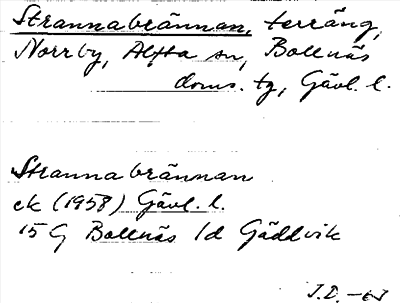 Strannabrännan, terräng,
Norrby, Alfta sn, Bollnäs
doms. tg, Gävl. l.
Strannabrännan
ek (1958) Gävl. l.
15 G Bollnäs 1d Gäddvik
J.D. -63